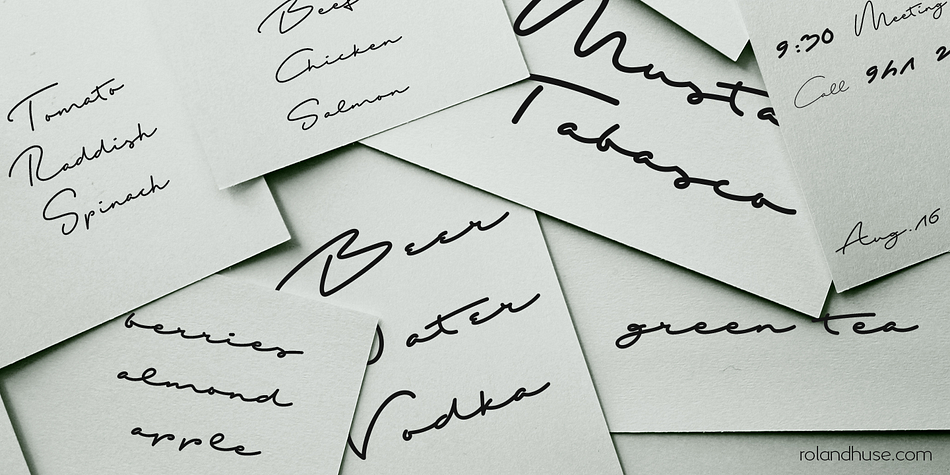 Beef
Chicken
Salmon
Tomato
Raddish
Spinach
Musta
Tabasco
9:30 Meeting
Call
Aug. 16
Beer
ater
Vodka
berries
almond
apple
green tea
rolandhuse.com